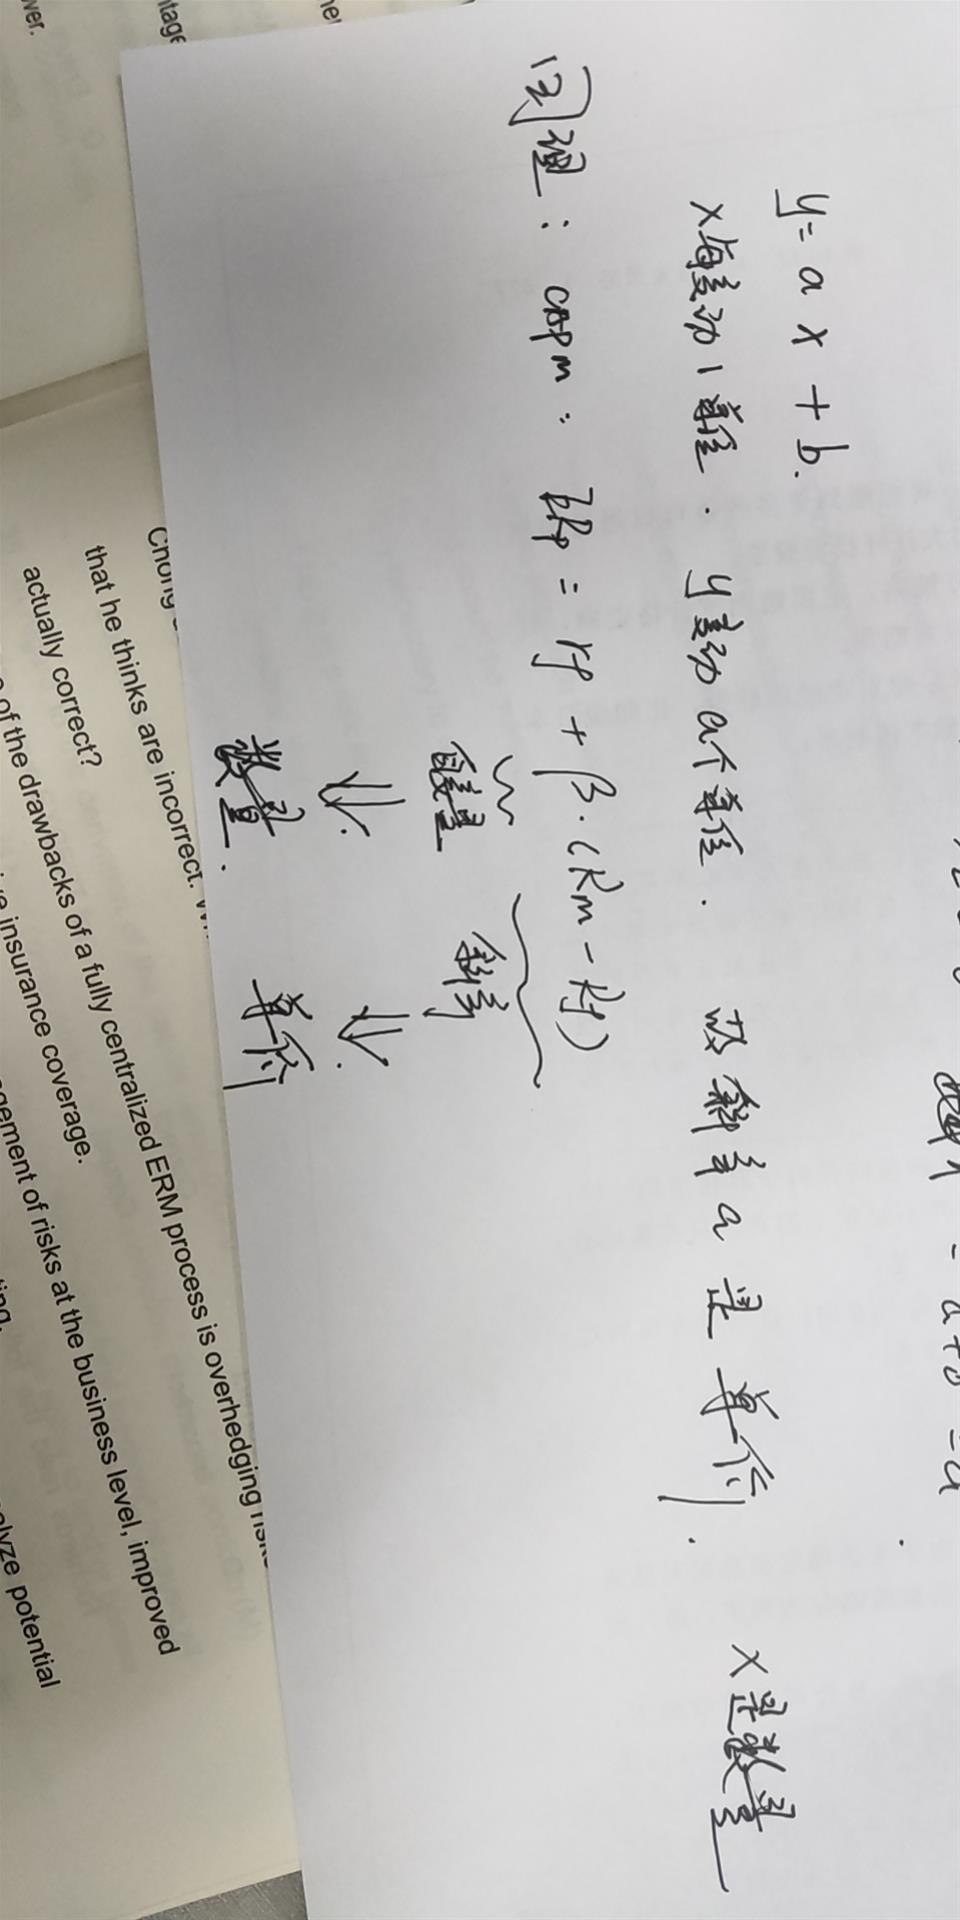 = a+b = a
y = a x + b.
x每变动1单位. y变动a个单位. 故斜率a是单价. x是数量
同理: CAPM: ERp = rf + β·(Rm - Rf)
变量 斜率
⇓. ⇓.
数量. 单价
Chong
that he thinks are incorrect.
actually correct?
of the drawbacks of a fully centralized ERM process is overhedging risk
insurance coverage.
gement of risks at the business level, improved
ting.
lyze potential
ver.
ntage